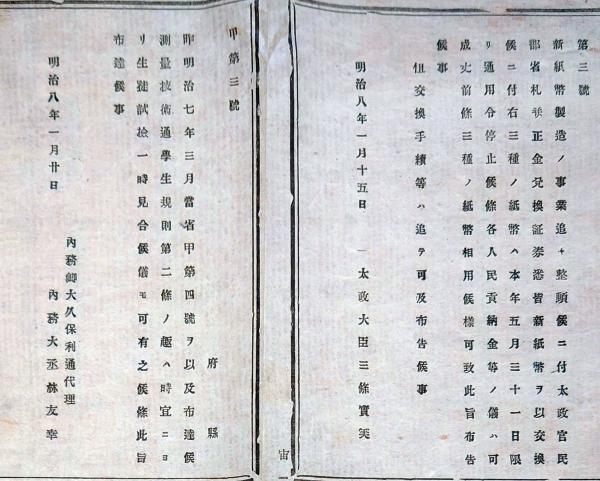 第三號
新紙幣製造ノ事業追々整頓候ニ付太政官民
部省札並正金兌換証券悉皆新紙幣ヲ以交換
候ニ付右三種ノ紙幣ハ本年五月三十一日限
リ通用令停止候條各人民貢納金等ノ儀ハ可
成丈前條三種ノ紙幣相用候樣可致此旨布告
候事
但交換手續等ハ追テ可及布告候事
明治八年一月十五日
太政大臣三條實美
甲第三號
府縣
昨明治七年三月當省甲第四號ヲ以及布達候
測量技術通學生規則第二條ノ趣ハ時宜ニヨ
リ生徒試撿一時見合候儀モ可有之候條此旨
布達候事
明治八年一月廿日
內務卿大久保利通代理
內務大丞林友幸
宙